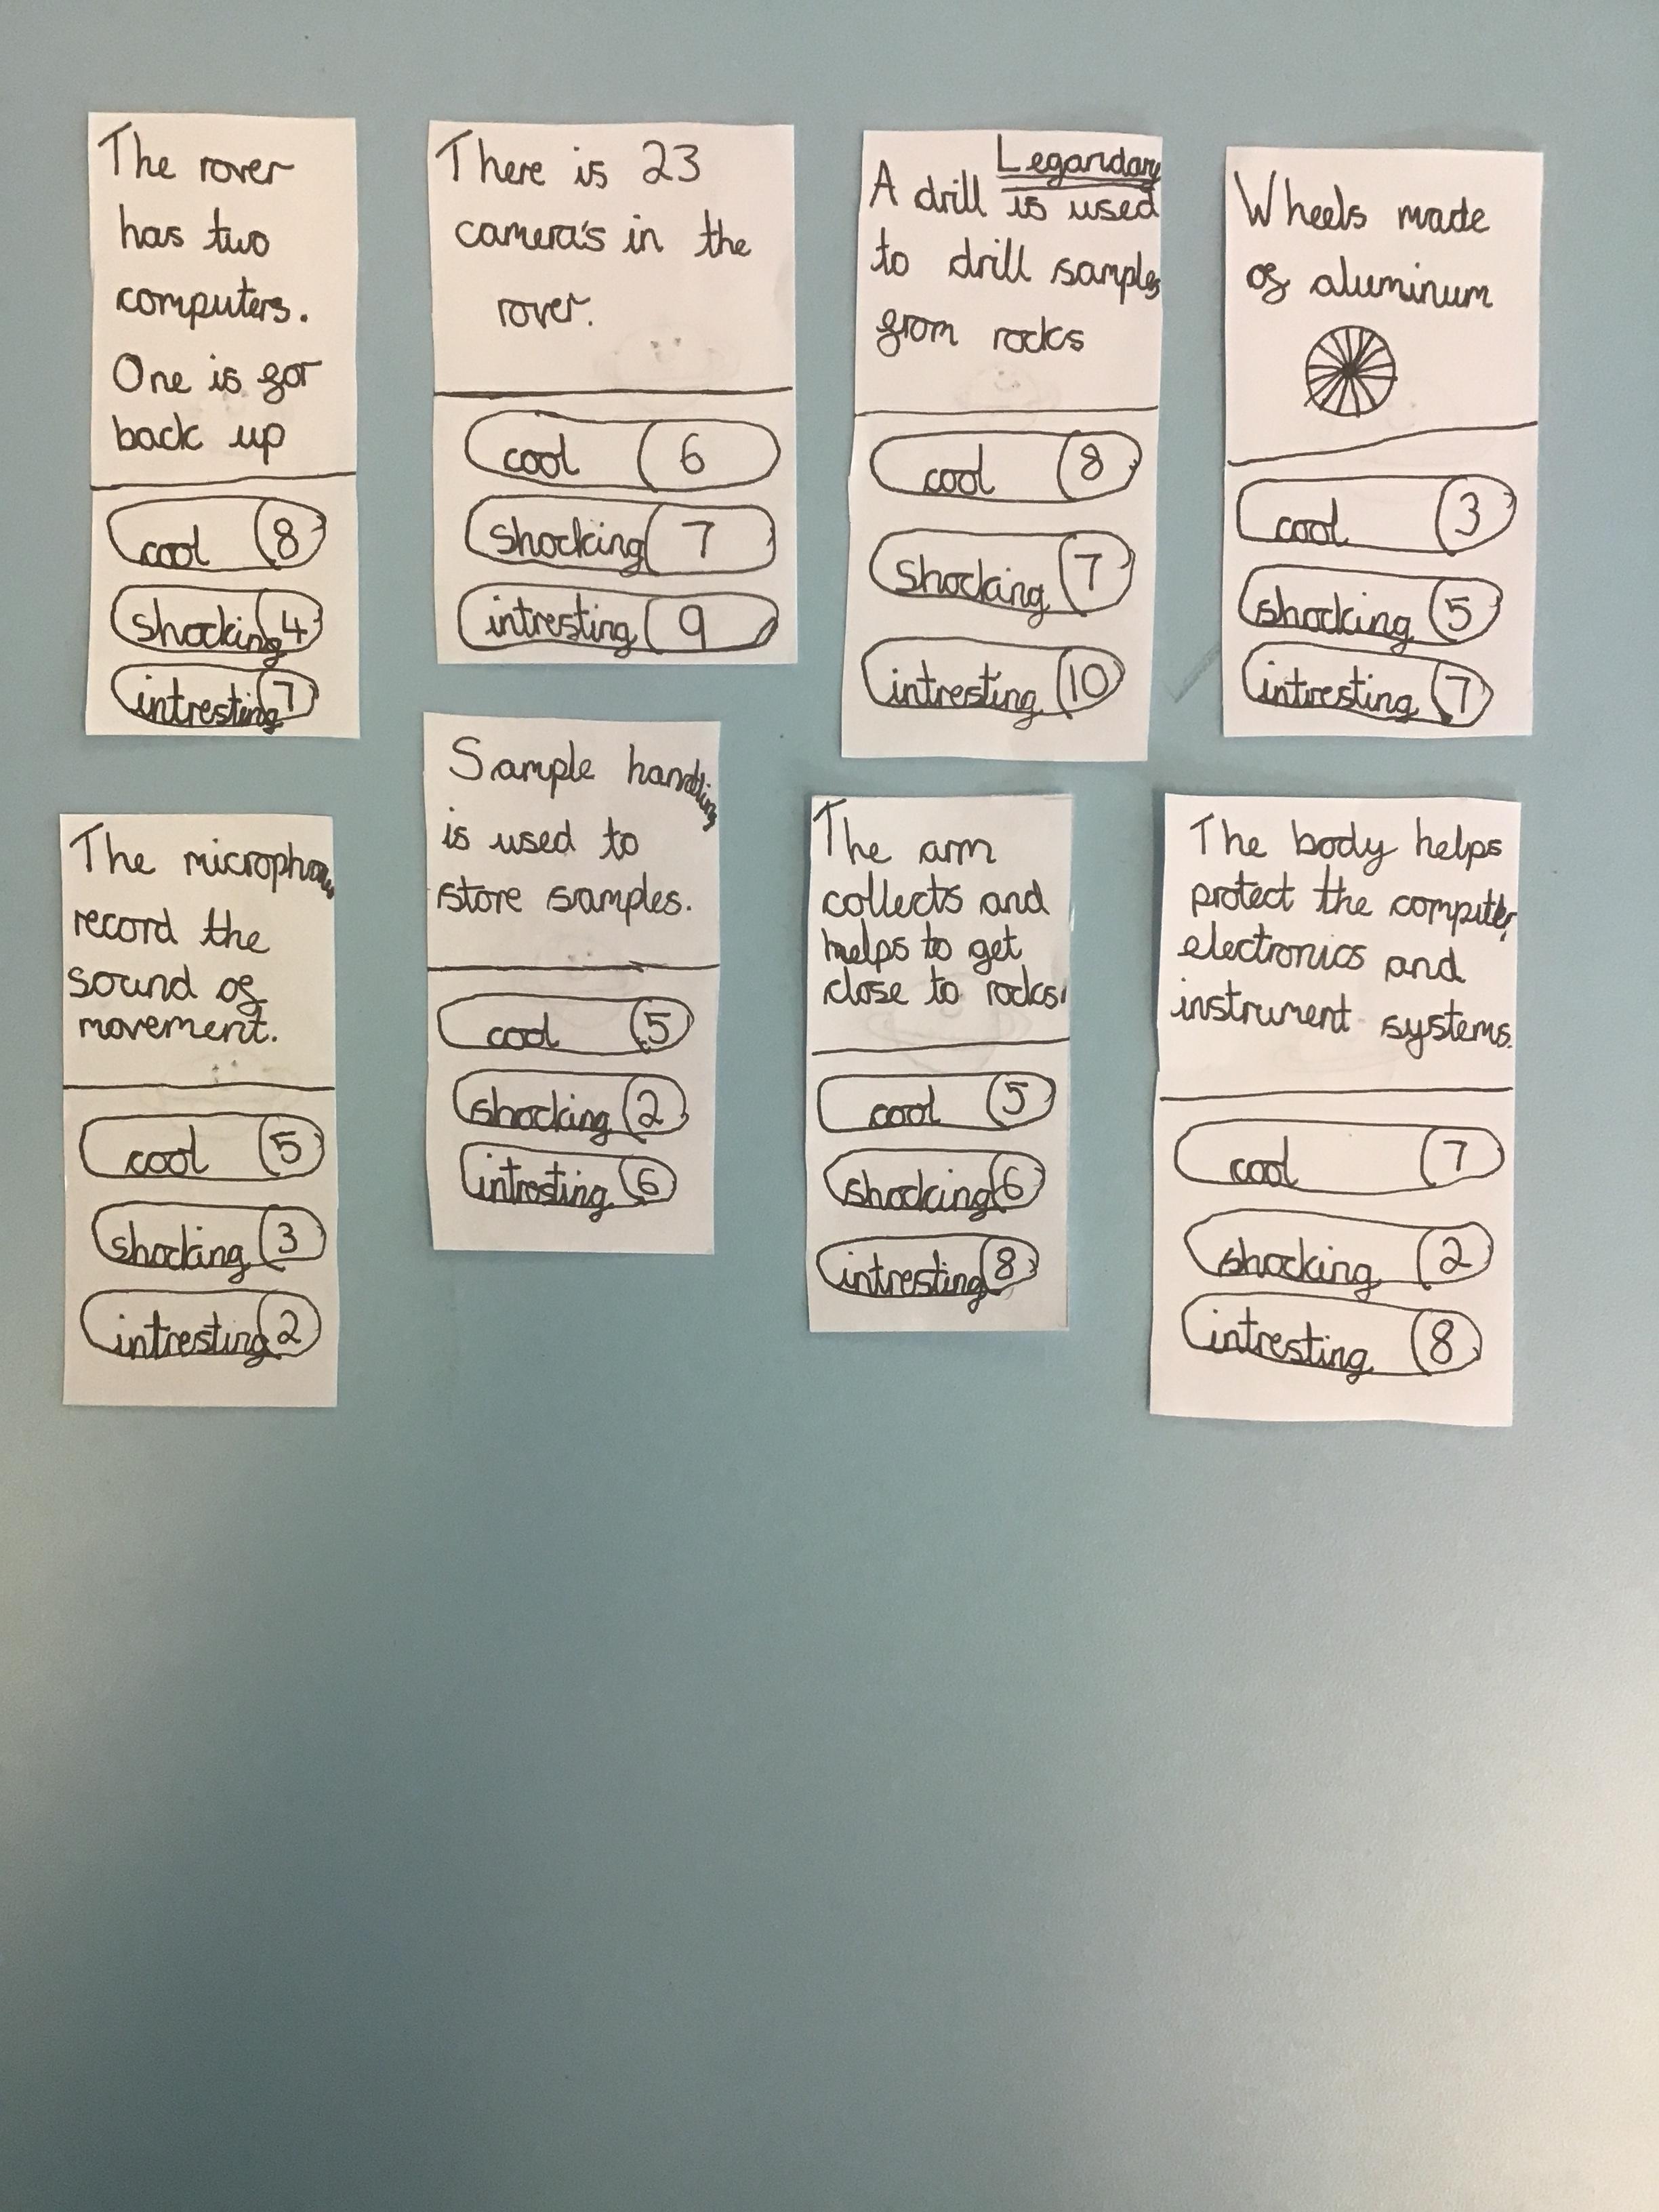 The rover
has two
computers.
One is for
back up
cool 8
shocking 4
intresting 7
There is 23
camera's in the
rover.
cool 6
shocking 7
intresting 9
Legandary
A drill is used
to drill samples
from rocks
cool 8
shocking 7
intresting 10
Wheels made
of aluminum
cool 3
shocking 5
intresting 7
The microphones
record the
sound of
movement.
cool 5
shocking 3
intresting 2
Sample handling
is used to
store samples.
cool 5
shocking 2
intresting 6
The arm
collects and
helps to get
close to rocks.
cool 5
shocking 6
intresting 8
The body helps
protect the computer,
electronics and
instrument systems.
cool 7
shocking 2
intresting 8